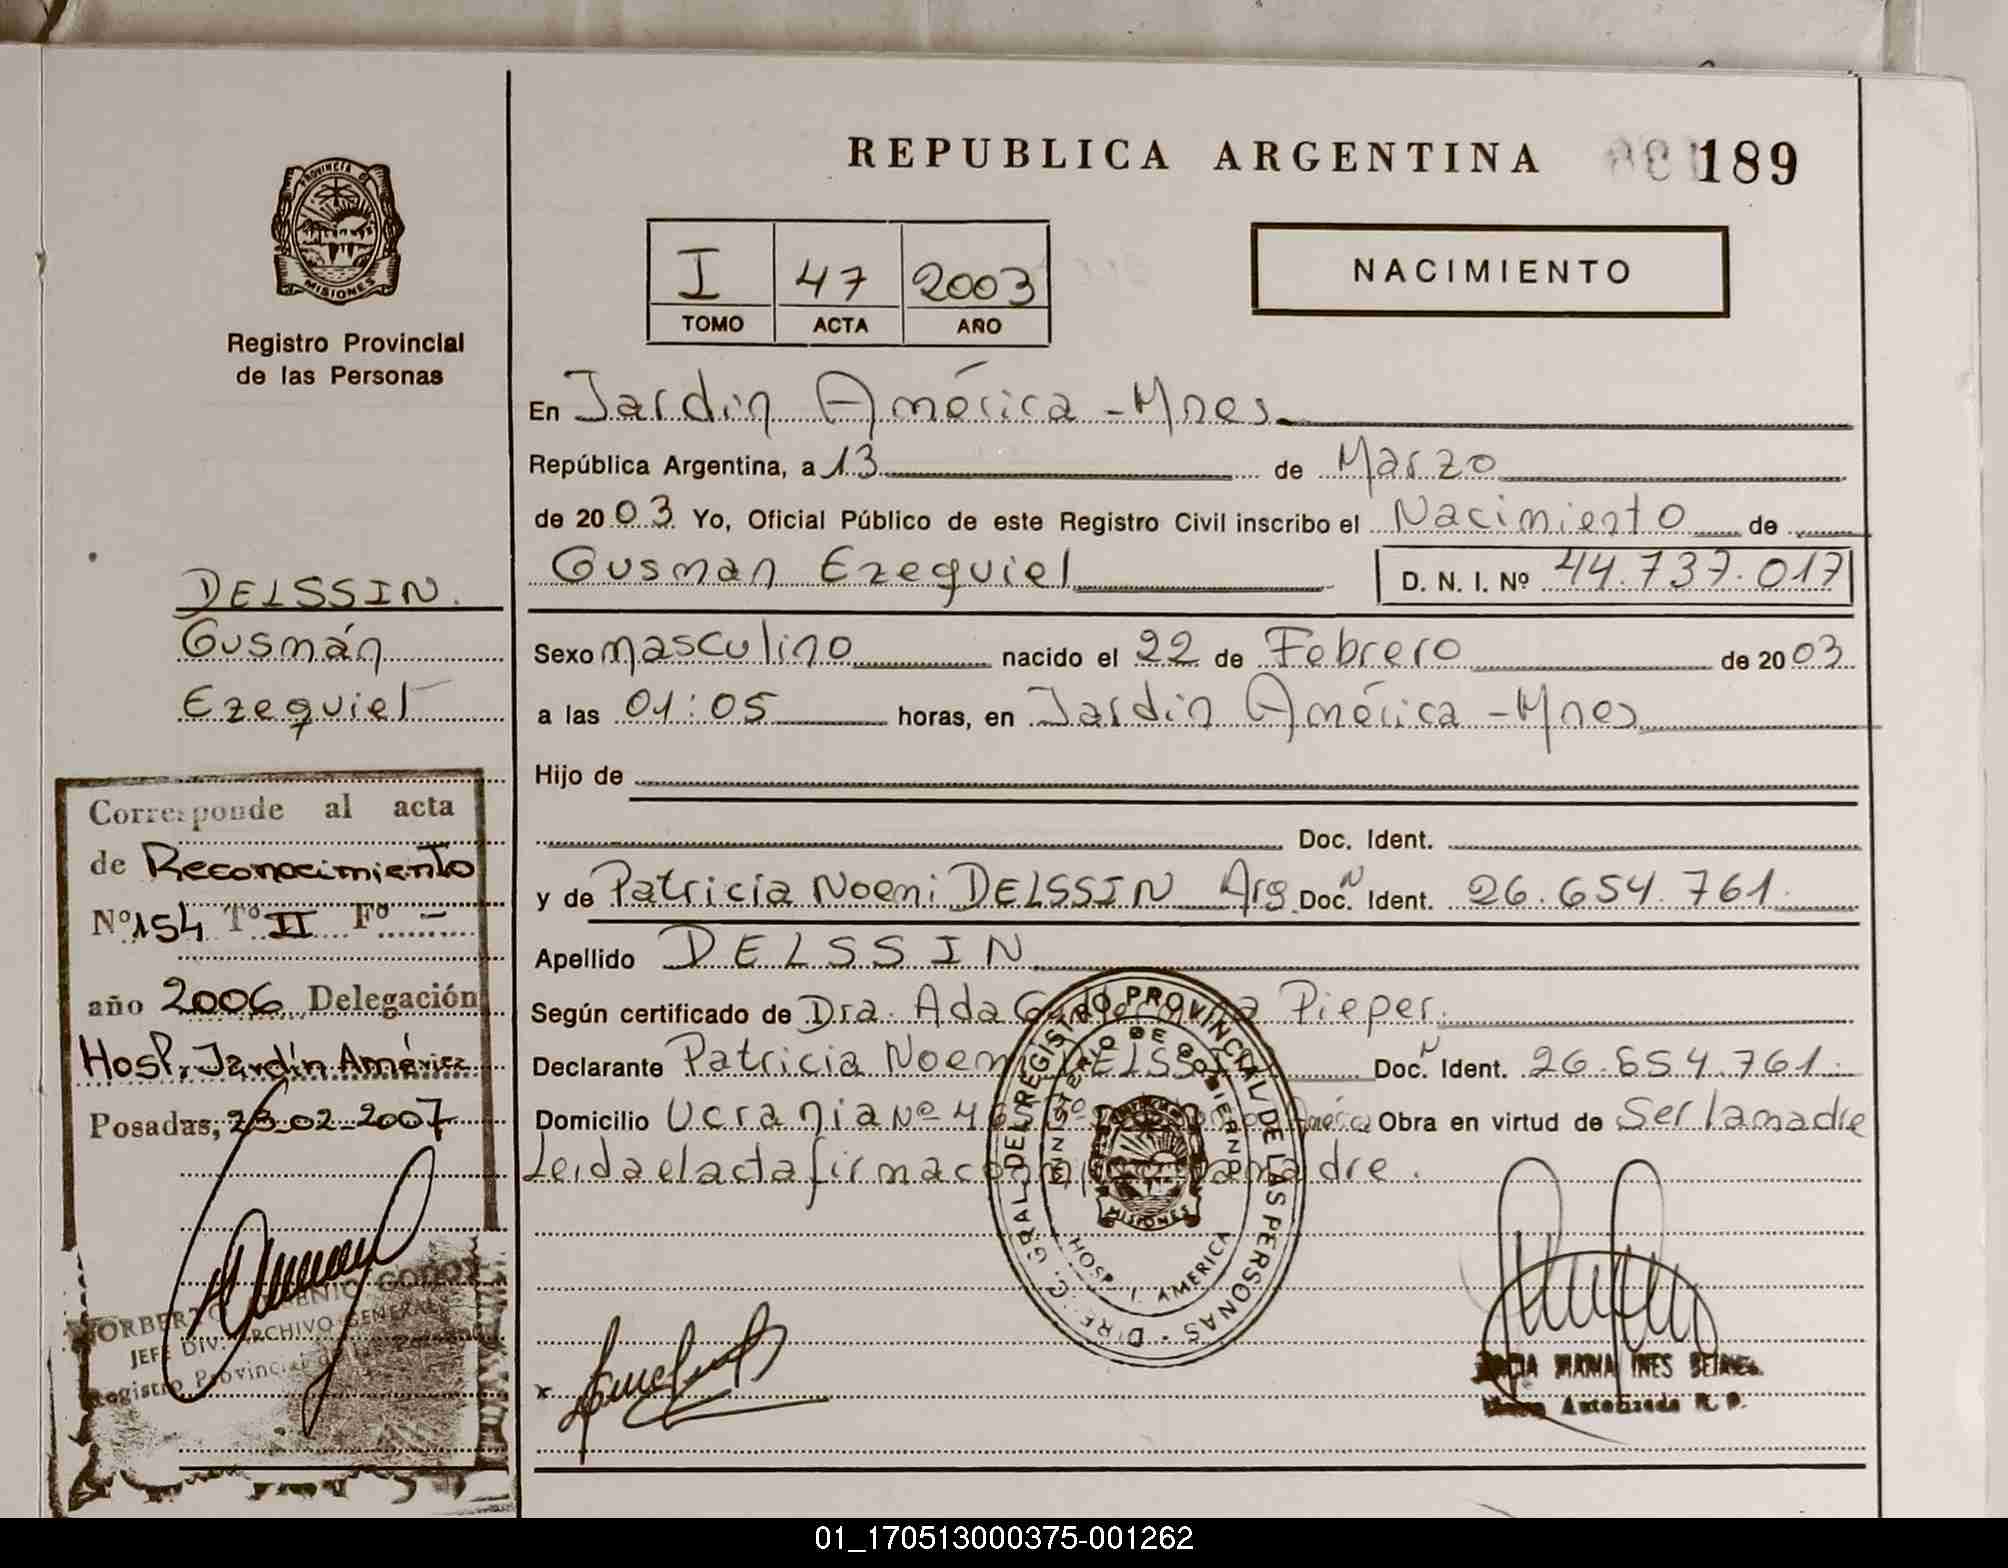 REPUBLICA ARGENTINA 189
PROVINCIA DE
MISIONES
Registro Provincial
de las Personas
I 47 2003
TOMO ACTA AÑO
NACIMIENTO
En Jardin América - Mnes
República Argentina, a 13 de Marzo
de 2003 Yo, Oficial Público de este Registro Civil inscribo el Nacimiento de
Gusman Ezequiel D. N. I. Nº 44.737.017
Sexo masculino nacido el 22 de Febrero de 2003
a las 01:05 horas, en Jardin América - Mnes
Hijo de
Doc. Ident.
y de Patricia Noemi DELSSIN Arg. Doc. N Ident. 26.654.761
Apellido DELSSIN
Según certificado de Dra. Ada Pieper.
Declarante Patricia Noemi DELSSIN Doc. N Ident. 26.654.761
Domicilio Ucrania Nº América Obra en virtud de Ser la madre
Leida el acta firma conmigo la madre.
DELSSIN.
Gusmán
Ezequiel
Corresponde al acta
de Reconocimiento
Nº 154 Tº II Fº -
año 2006 Delegación
Hosp. Jardín América
Posadas, 23-02-2007
NORBERTO EUGENIO GODOY
JEFE DIV. ARCHIVO GENERAL
Registro Provincial de las Personas
DIREC. GRAL. DEL REGISTRO PROVINCIAL DE LAS PERSONAS
MINISTERIO DE GOBIERNO
MISIONES
HOSP. J. AMERICA
x
MARIA INES
Autorizada R. P.
01_170513000375-001262